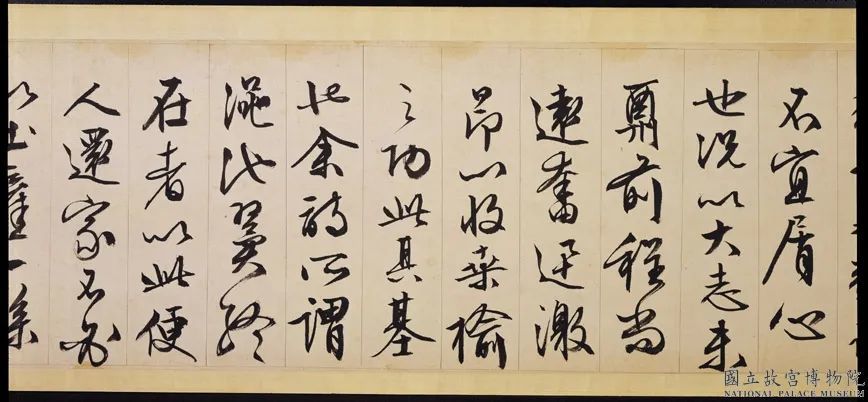 不宜屑心
也况以大志未
前程尚
遠奮迅激
昂以收桑榆
之功此其基
也余詩所謂
澠池翼終
在者以此便
人還家不
以書 一
國立故宮博物院
NATIONAL PALACE MUSEUM